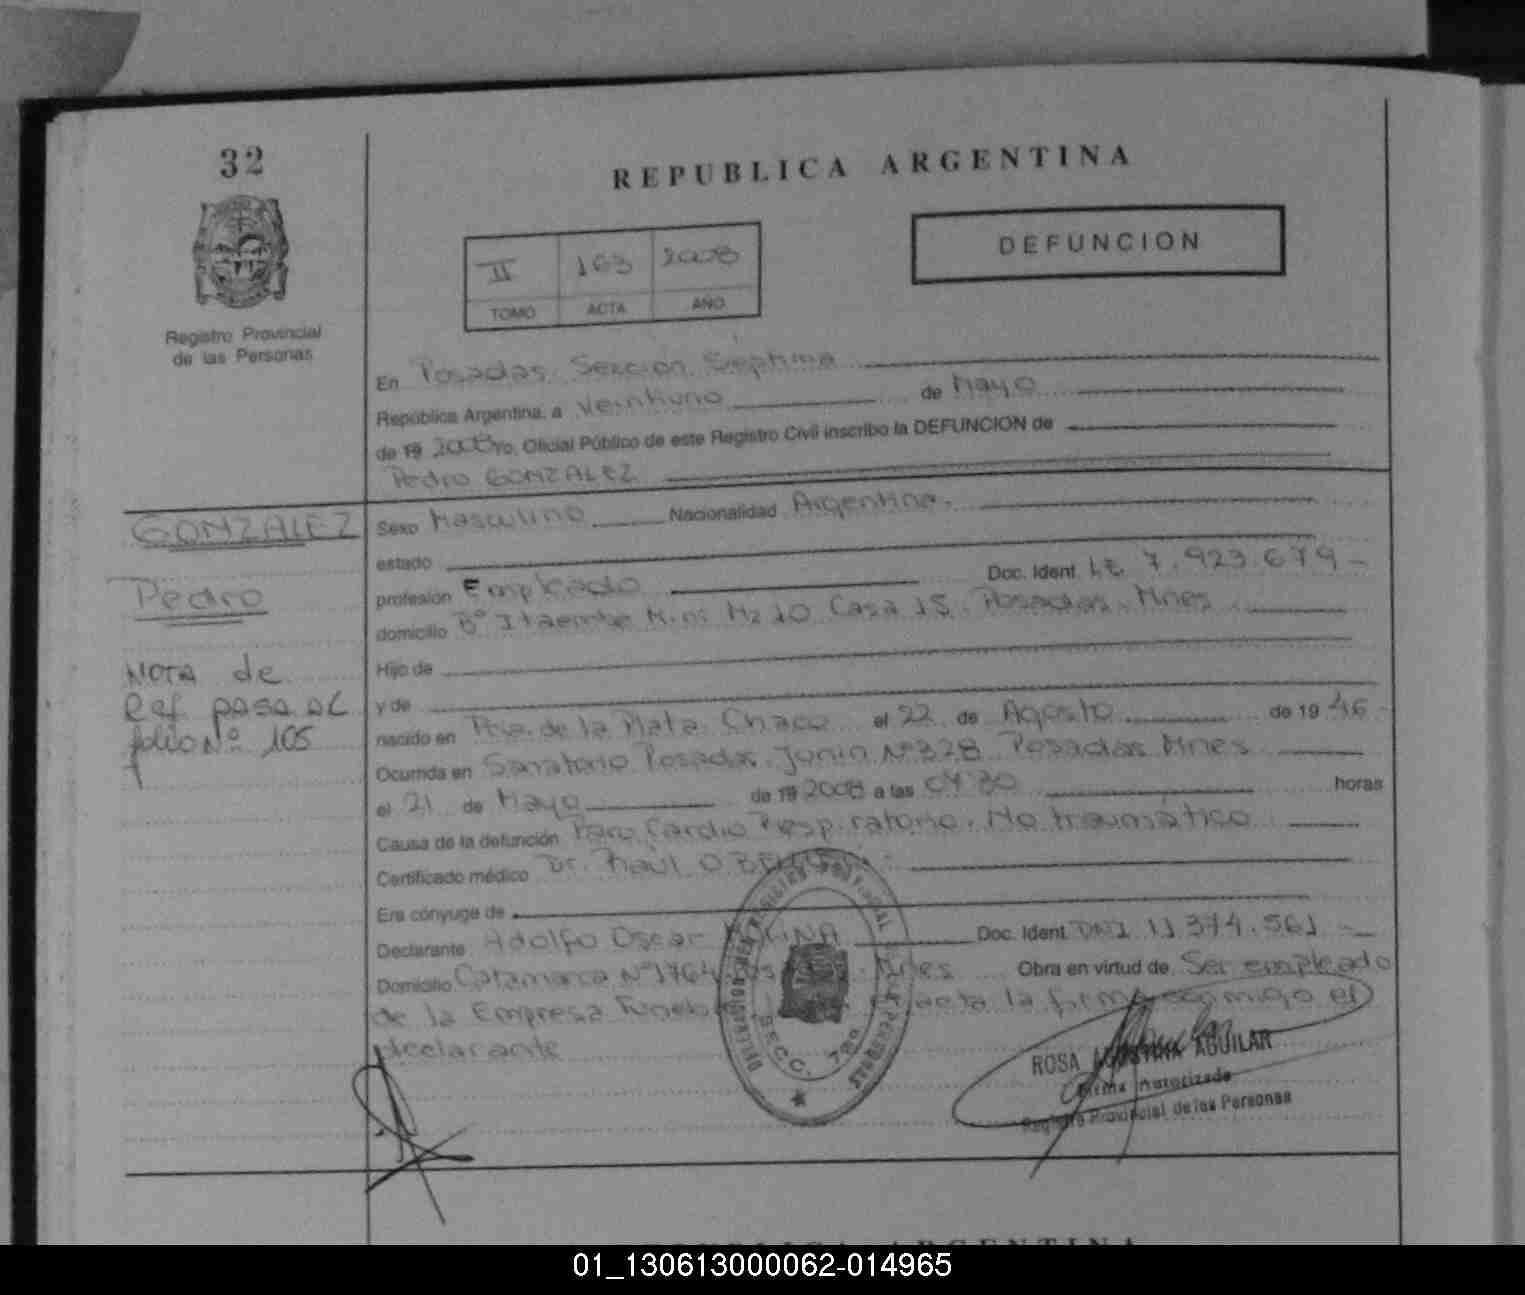 32
REPUBLICA ARGENTINA
Registro Provincial
de las Personas
II 163 2008
TOMO ACTA AÑO
DEFUNCION
En Posadas. Sección Séptima
República Argentina, a veintiuno de Mayo
de 19 2008 yo, Oficial Público de este Registro Civil inscribo la DEFUNCION de
Pedro GONZALEZ
GONZALEZ
Pedro
NOTA de
Ref pasa al
folio Nº 105
Sexo Masculino Nacionalidad Argentina.
estado
profesión Empleado Doc. Ident. LE 7.923.679 -
domicilio Bº Itaembe Mini Mz 10 Casa 15. Posadas. Mnes
Hijo de
y de
nacido en Pcia. de la Plata. Chaco el 22 de Agosto de 19 46
Ocurrida en Sanatorio Posadas. Junín Nº 328 Posadas Mnes
el 21 de Mayo de 19 2008 a las horas
Causa de la defunción Paro Cardio Respiratorio. No traumático
Certificado médico Dr. Raúl O.
Era cónyuge de
Declarante Adolfo Oscar Doc. Ident. DNI 11.374.561 -
Domicilio Catamarca Nº 1764 Mnes Obra en virtud de Ser empleado
de la Empresa acta la firma conmigo el
declarante
REGISTRO PROVINCIAL DE LAS PERSONAS
SECC. 7MA
ROSA AGUSTINA AGUILAR
Firma Autorizada
Registro Provincial de las Personas
REPUBLICA ARGENTINA
01_130613000062-014965